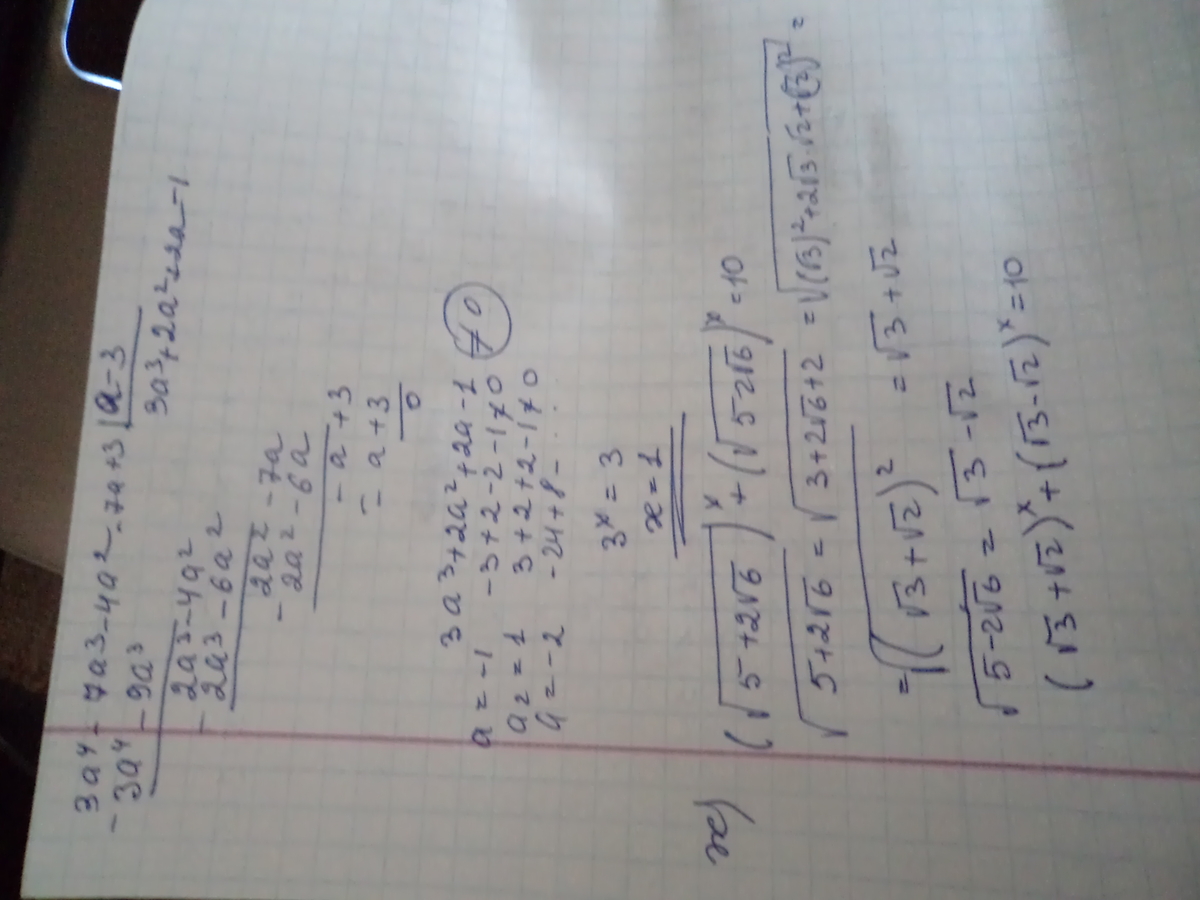 3a⁴ - 7a³ - 4a² - 7a + 3 | a - 3
- 3a⁴ - 9a³
3a³ + 2a² + 2a - 1
2a³ - 4a²
- 2a³ - 6a²
2a² - 7a
- 2a² - 6a
- a + 3
= a + 3
0
3a³ + 2a² + 2a - 1 ≠ 0
a = -1 -3 + 2 - 2 - 1 ≠ 0
a = 1 3 + 2 + 2 - 1 ≠ 0
a = -2 -24 + 8 - ...
3ˣ = 3
x = 1
ж) (√(5 + 2√6))ˣ + (√(5 - 2√6))ˣ = 10
√(5 + 2√6) = √(3 + 2√6 + 2) = √((√3)² + 2√3·√2 + (√2)²) =
= √((√3 + √2)²) = √3 + √2
√(5 - 2√6) = √3 - √2
(√3 + √2)ˣ + (√3 - √2)ˣ = 10